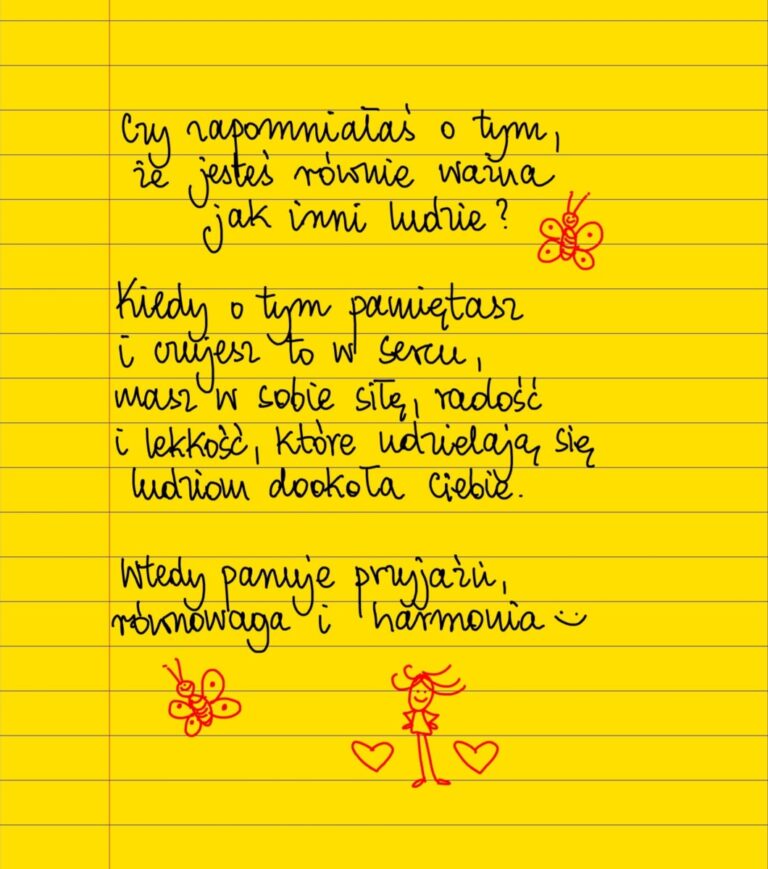 Czy zapomniałaś o tym,
że jesteś równie ważna
jak inni ludzie?
Kiedy o tym pamiętasz
i czujesz to w sercu,
masz w sobie siłę, radość
i lekkość, które udzielają się
ludziom dookoła Ciebie.
Wtedy panuje przyjaźń,
równowaga i harmonia :)